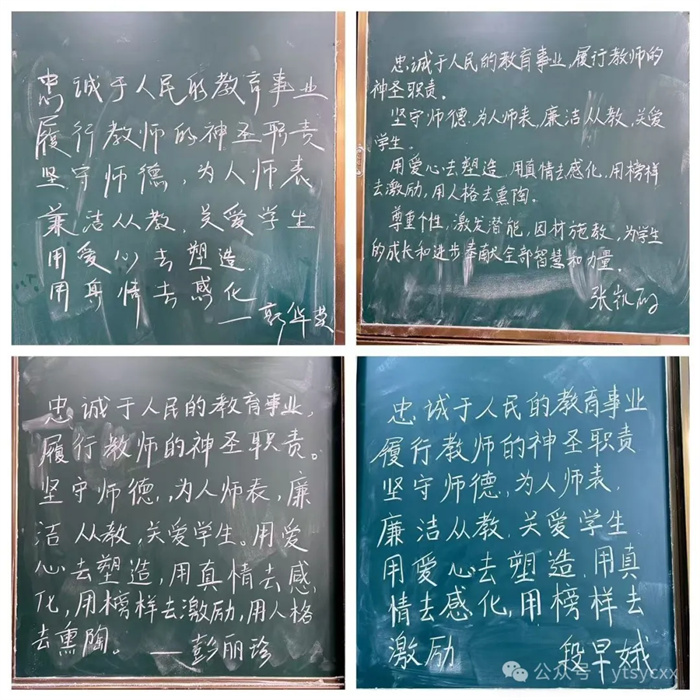 忠诚于人民的教育事业
履行教师的神圣职责
坚守师德,为人师表
廉洁从教.关爱学生
用爱心去塑造.
用真情去感化
——彭华英
忠诚于人民的教育事业,履行教师的
神圣职责。
坚守师德.为人师表,廉洁从教,关爱
学生。
用爱心去塑造,用真情去感化,用榜样
去激励,用人格去熏陶。
尊重个性,激发潜能,因材施教,为学生
的成长和进步奉献全部智慧和力量。
张凯
忠诚于人民的教育事业,
履行教师的神圣职责。
坚守师德,为人师表,廉
洁从教,关爱学生。用爱
心去塑造,用真情去感
化,用榜样去激励,用人格
去熏陶。——彭丽珍
忠诚于人民的教育事业
履行教师的神圣职责
坚守师德,为人师表.
廉洁从教.关爱学生
用爱心去塑造.用真
情去感化,用榜样去
激励 段早娥
公众号·ytsycxx